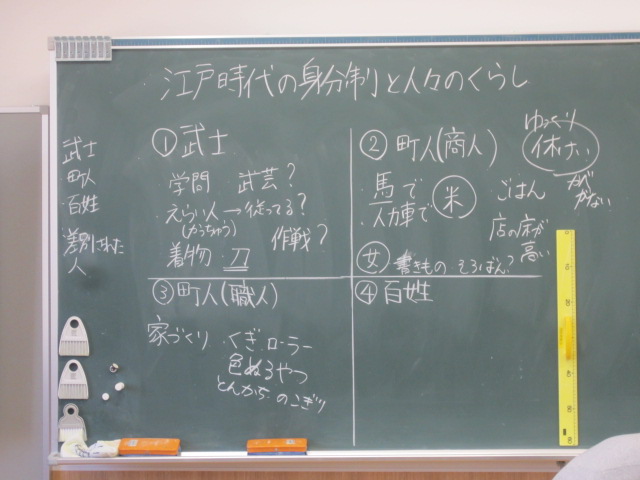 江戸時代の身分制と人々のくらし
武士
町人
百姓
差別された
人
①武士
学問 武芸?
えらい人→従ってる?
(かっちゅう)
作戦?
着物 刀
②町人(商人)
ゆっくり
休けい
・馬で
・人力車で
米
ごはん
かべ
がない
店の床が
高い
女 書きもの そろばん?
③町人(職人)
家づくり ・くぎ・ローラー
色ぬるやつ
とんかち のこぎり
④百姓